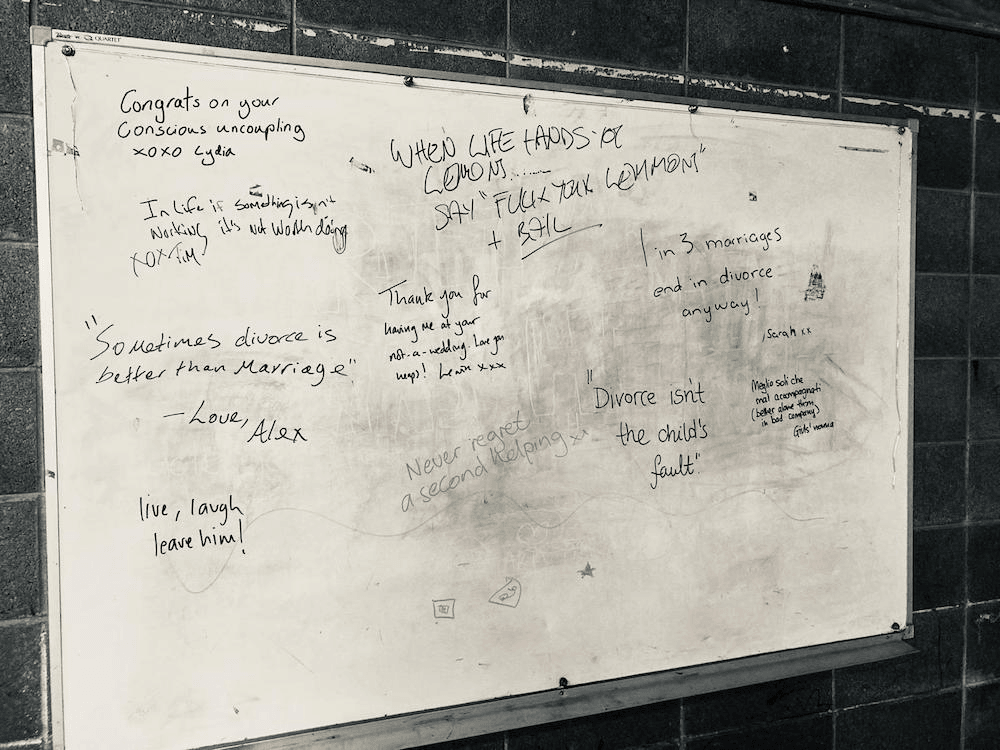 QUARTET
Congrats on your
Conscious uncoupling
xoxo Lydia
In life if something isn't
working it's not worth doing
XOX Tim
"Sometimes divorce is
better than Marriage"
- Love,
Alex
live, laugh
leave him!
WHEN LIFE HANDS YOU
LEMONS.......
SAY "FUCK YOUR LEMMONS"
+ BAIL
Thank you for
having me at your
not-a-wedding. Love you
heaps! xxx
Never regret
a second helping xx
1 in 3 marriages
end in divorce
anyway!
, Sarah xx
"Divorce isn't
the child's
fault"
Meglio soli che
mal accompagnati
(better alone than
in bad company)
nonna